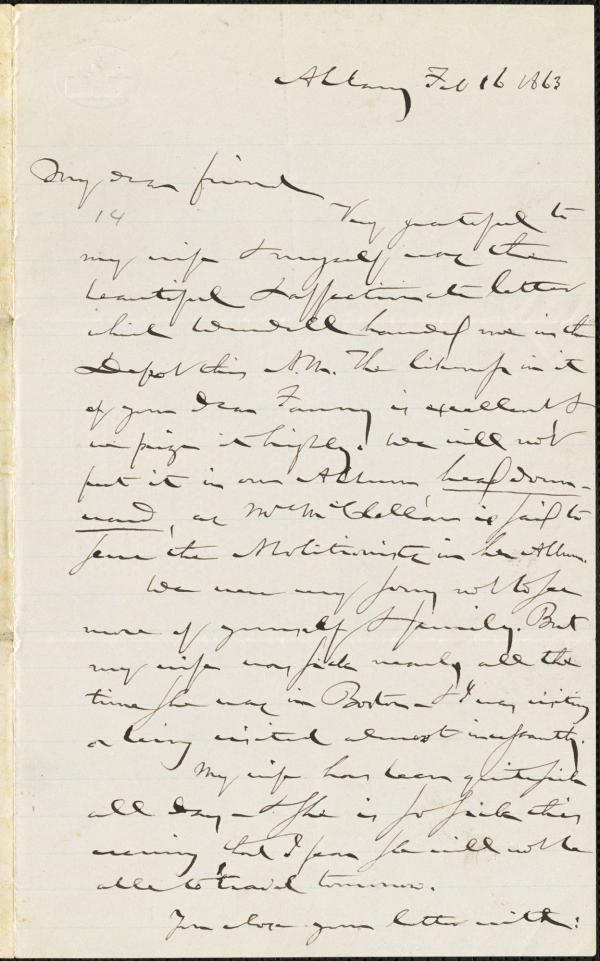 Albany Feb 16 1863
My dear friend
14
Very grateful to
my wife & myself was the
beautiful & affectionate letter
which Wendell handed me in the
Depot this A.M. The likeness in it
of your dear Fanny is excellent &
we prize it highly. We will not
put it in our Album head down-
ward, as Mrs McClellan is said to
serve the Abolitionists in her Album.
We were very sorry not to see
more of yourself & family. But
my wife was sick nearly all the
time she was in Boston & I was visiting
or being visited almost incessantly.
My wife has been quite sick
all day & she is so sick this
evening that I fear she will not be
able to travel tomorrow.
You close your letter with: